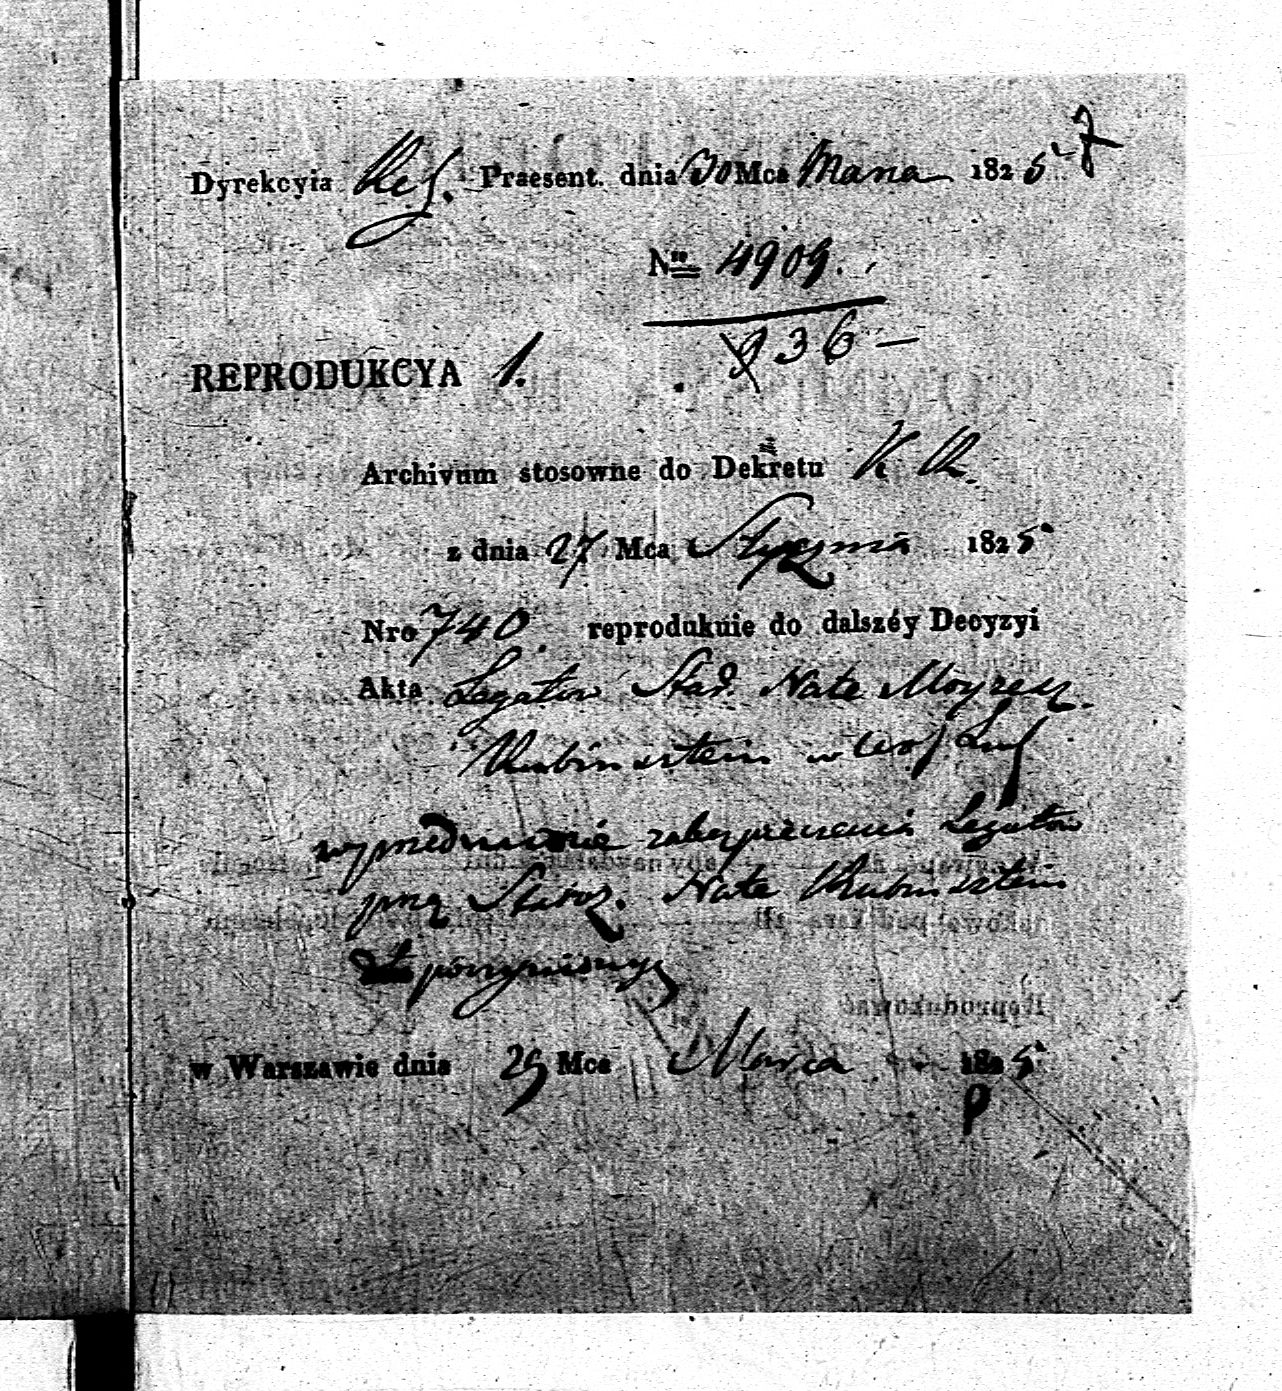 7
Dyrekcyia Praesent. dnia 30 Mca Marca 1825
Nro 4909.
936 —
REPRODUKCYA 1.
Archivum stosowne do Dekretu K. R.
z dnia 27 Mca Stycznia 1825
Nro 740. reprodukuie do dalszéy Decyzyi
Akta Legatów Staś. Nate Moyżesz.
Rubinsztein w
w przedmiocie zabezpieczenia Legatów
przez Staroz. Nate Rubinsztein
poczynionych
w Warszawie dnia 29 Mca Marca 1825